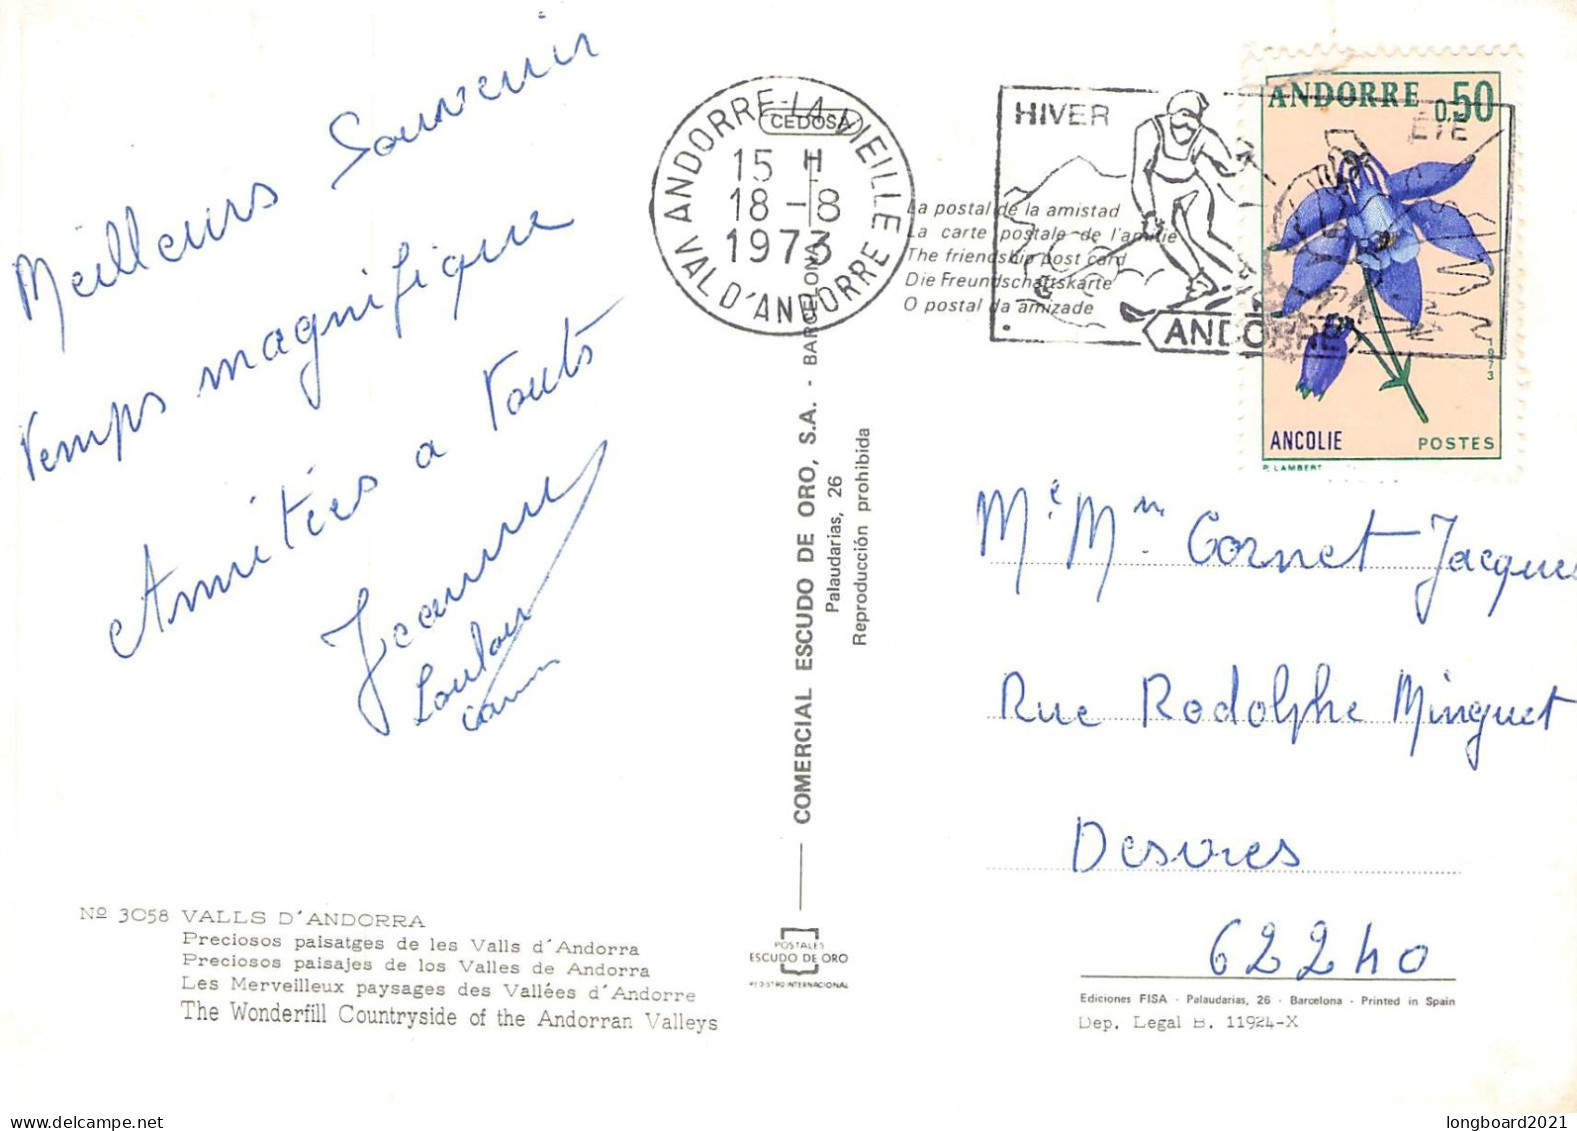 Meilleurs Souvenir
temps magnifique
Amitiés a touts
Jeanne
Loulou
ANDORRE-LA-VIEILLE
CEDOSA
15 H
18-8
1973
VAL D'ANDORRE
HIVER
ÉTÉ
ANDORRE
La postal de la amistad
La carte postale de l'amitie
The friendship post card
Die Freundschaftskarte
O postal da amizade
ANDORRE
0,50
1973
ANCOLIE POSTES
P. LAMBERT
COMERCIAL ESCUDO DE ORO, S.A. - BARCELONA
Palaudarias, 26
Reproducción prohibida
Mr Mme Cornet Jacques
Rue Rodolphe Minguet
Desvres
62240
Nº 3058 VALLS D'ANDORRA
Preciosos paisatges de les Valls d'Andorra
Preciosos paisajes de los Valles de Andorra
Les Merveilleux paysages des Vallées d'Andorre
The Wonderfill Countryside of the Andorran Valleys
POSTALES
ESCUDO DE ORO
REGISTRO INTERNACIONAL
Ediciones FISA - Palaudarias, 26 - Barcelona - Printed in Spain
Dep. Legal B. 11924-X
longboard2021